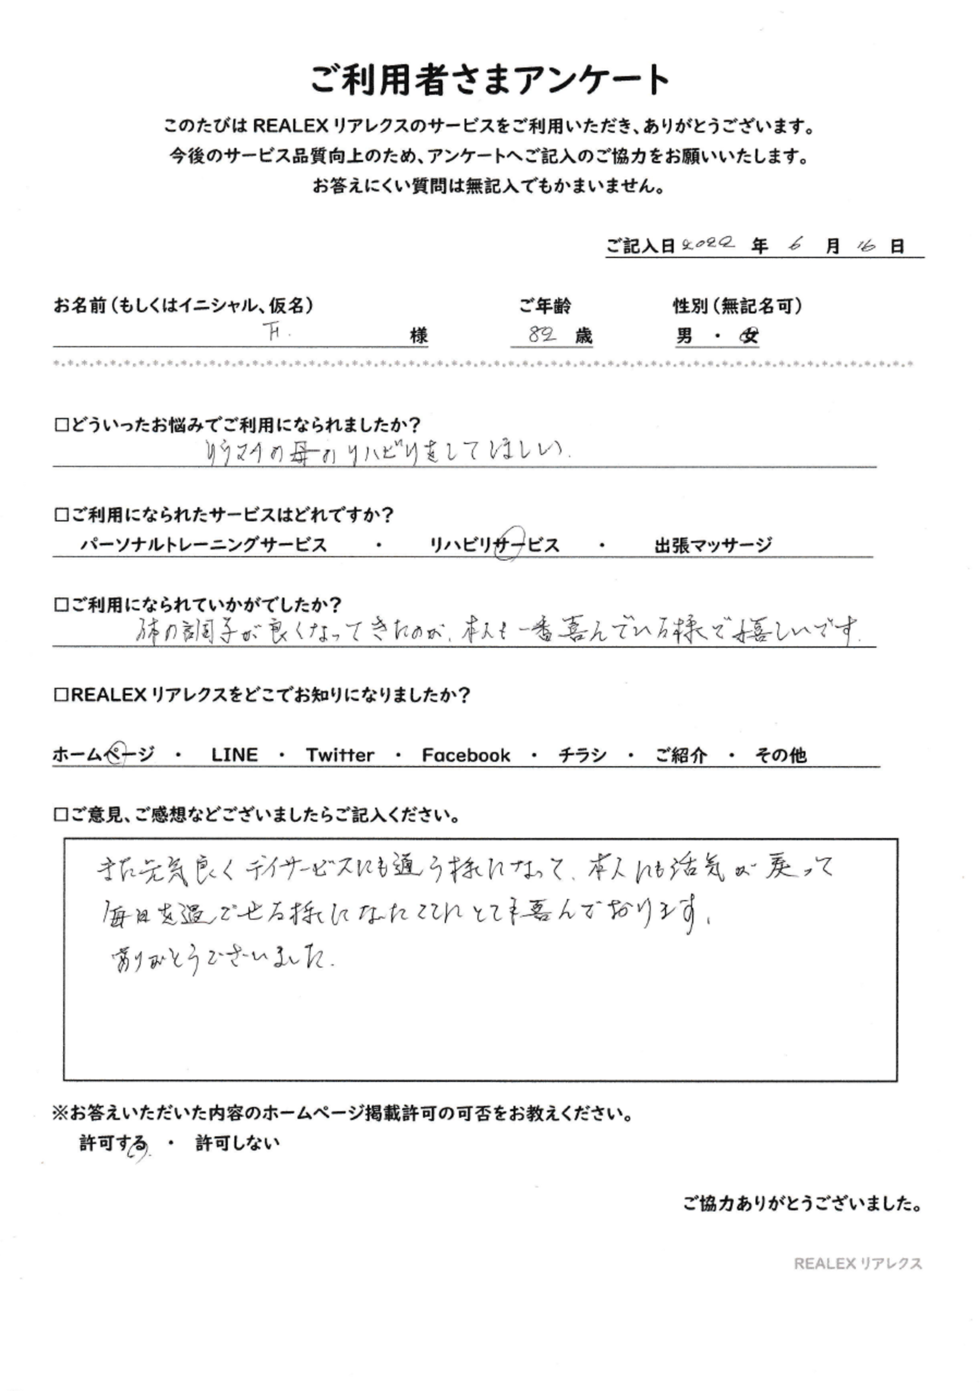 ご利用者さまアンケート
このたびは REALEX リアレクスのサービスをご利用いただき、ありがとうございます。
今後のサービス品質向上のため、アンケートへご記入のご協力をお願いいたします。
お答えにくい質問は無記入でもかまいません。
ご記入日 2022 年 6 月 16 日
お名前(もしくはイニシャル、仮名) ご年齢 性別(無記名可)
様 82 歳 男 ・ 女
□どういったお悩みでご利用になられましたか?
リウマチの母のリハビリをしてほしい.
□ご利用になられたサービスはどれですか?
パーソナルトレーニングサービス ・ リハビリサービス ・ 出張マッサージ
□ご利用になられていかがでしたか?
体の調子が良くなってきたのが、本人も一番喜んでいる様で嬉しいです.
□REALEX リアレクスをどこでお知りになりましたか?
ホームページ ・ LINE ・ Twitter ・ Facebook ・ チラシ ・ ご紹介 ・ その他
□ご意見、ご感想などございましたらご記入ください。
また元気良くデイサービスにも通う様になって、本人にも活気が戻って
毎日を過ごせる様になた とても喜んでおります.
ありがとうございました.
※お答えいただいた内容のホームページ掲載許可の可否をお教えください。
許可する ・ 許可しない
ご協力ありがとうございました。
REALEX リアレクス